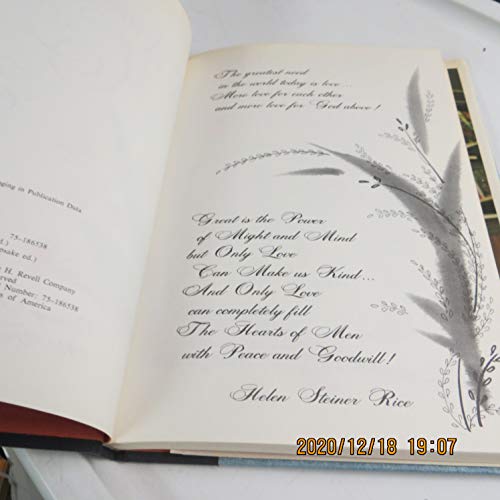 ging in Publication Data
75-186538
d.)
psake ed.)
H. Revell Company
erved
Number: 75-186538
s of America
The greatest need
in the world today is love...
More love for each other
and more love for God above!
Great is the Power
of Might and Mind
but Only Love
Can Make us Kind...
And Only Love
can completely fill
The Hearts of Men
with Peace and Goodwill!
Helen Steiner Rice
2020/12/18 19:07